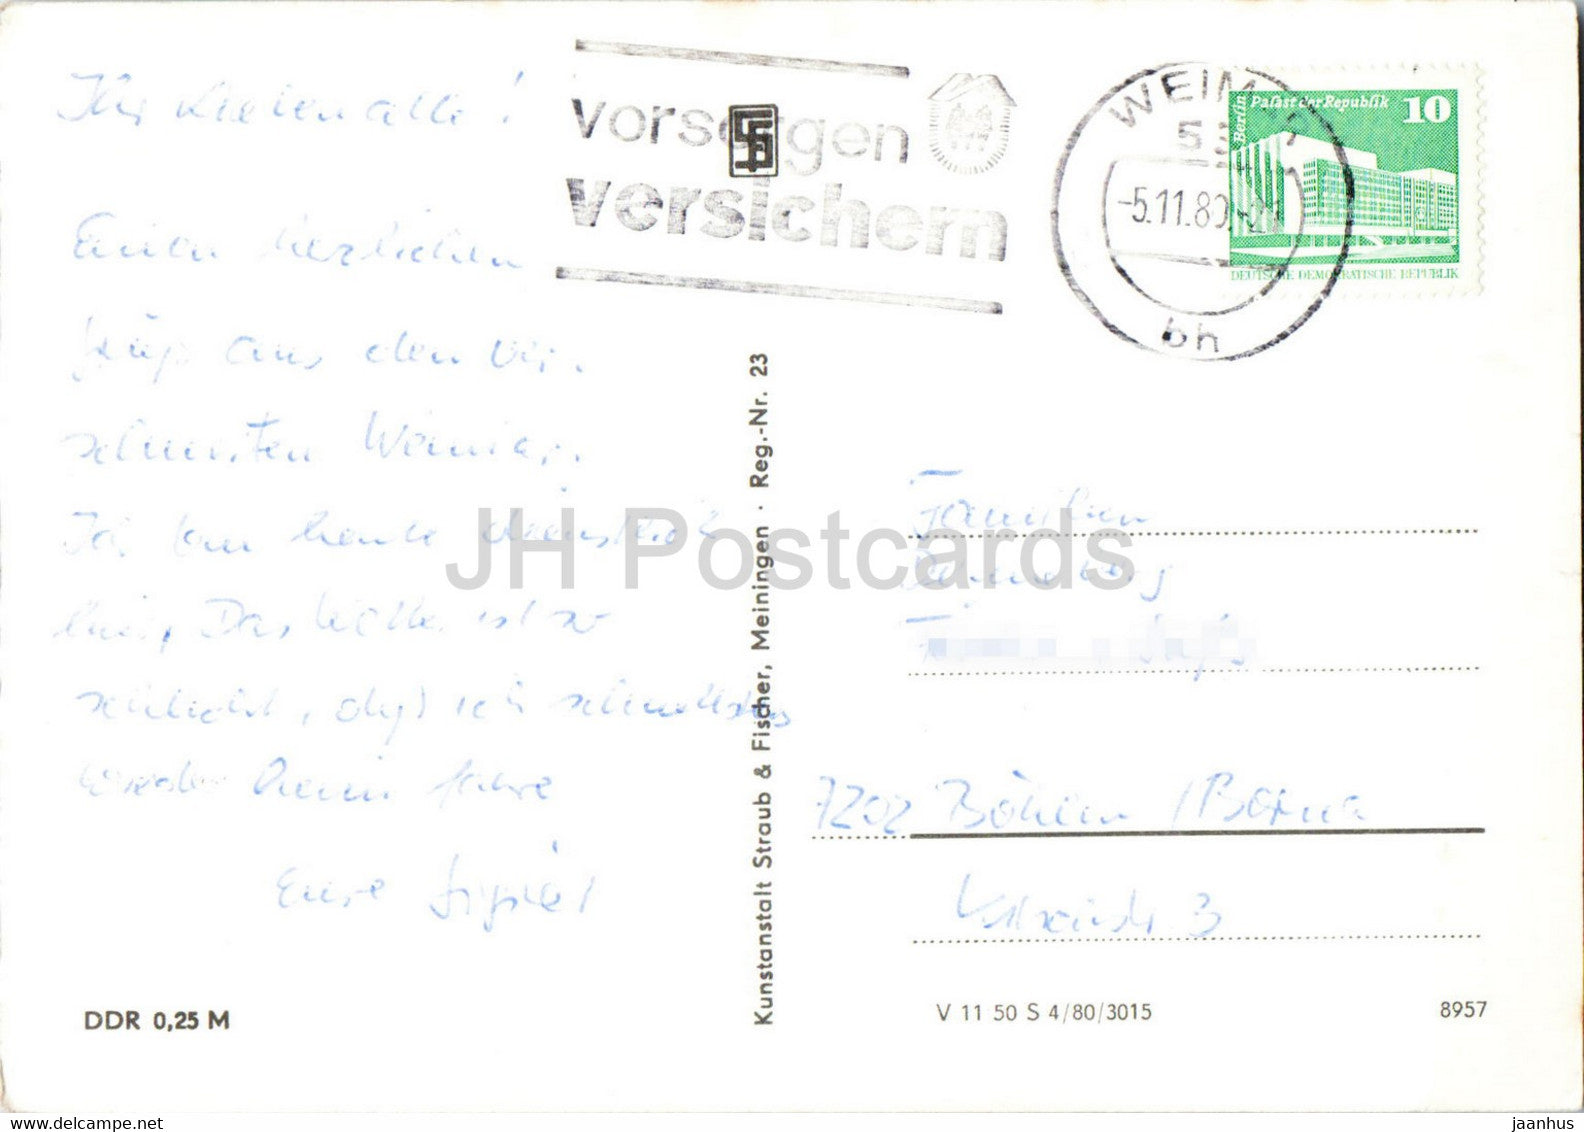 Ihr Lieben alle!
Einen herzlichen
Gruß aus dem ver-
schneiten Weimar.
Ich bin heute dienstlich
hier. Das Wetter ist so
schlecht, daß ich schnellstens
wieder heim fahre
Eure
vorsorgen
versichern
WEIMAR
5
-5.11.80
bh
Berlin Palast der Republik 10
DEUTSCHE DEMOKRATISCHE REPUBLIK
Kunstanstalt Straub & Fischer, Meiningen · Reg.-Nr. 23
Familien
7202 Böhlen / Borna
3
DDR 0,25 M
V 11 50 S 4/80/3015
8957
JH Postcards
www.delcampe.net
jaanhus